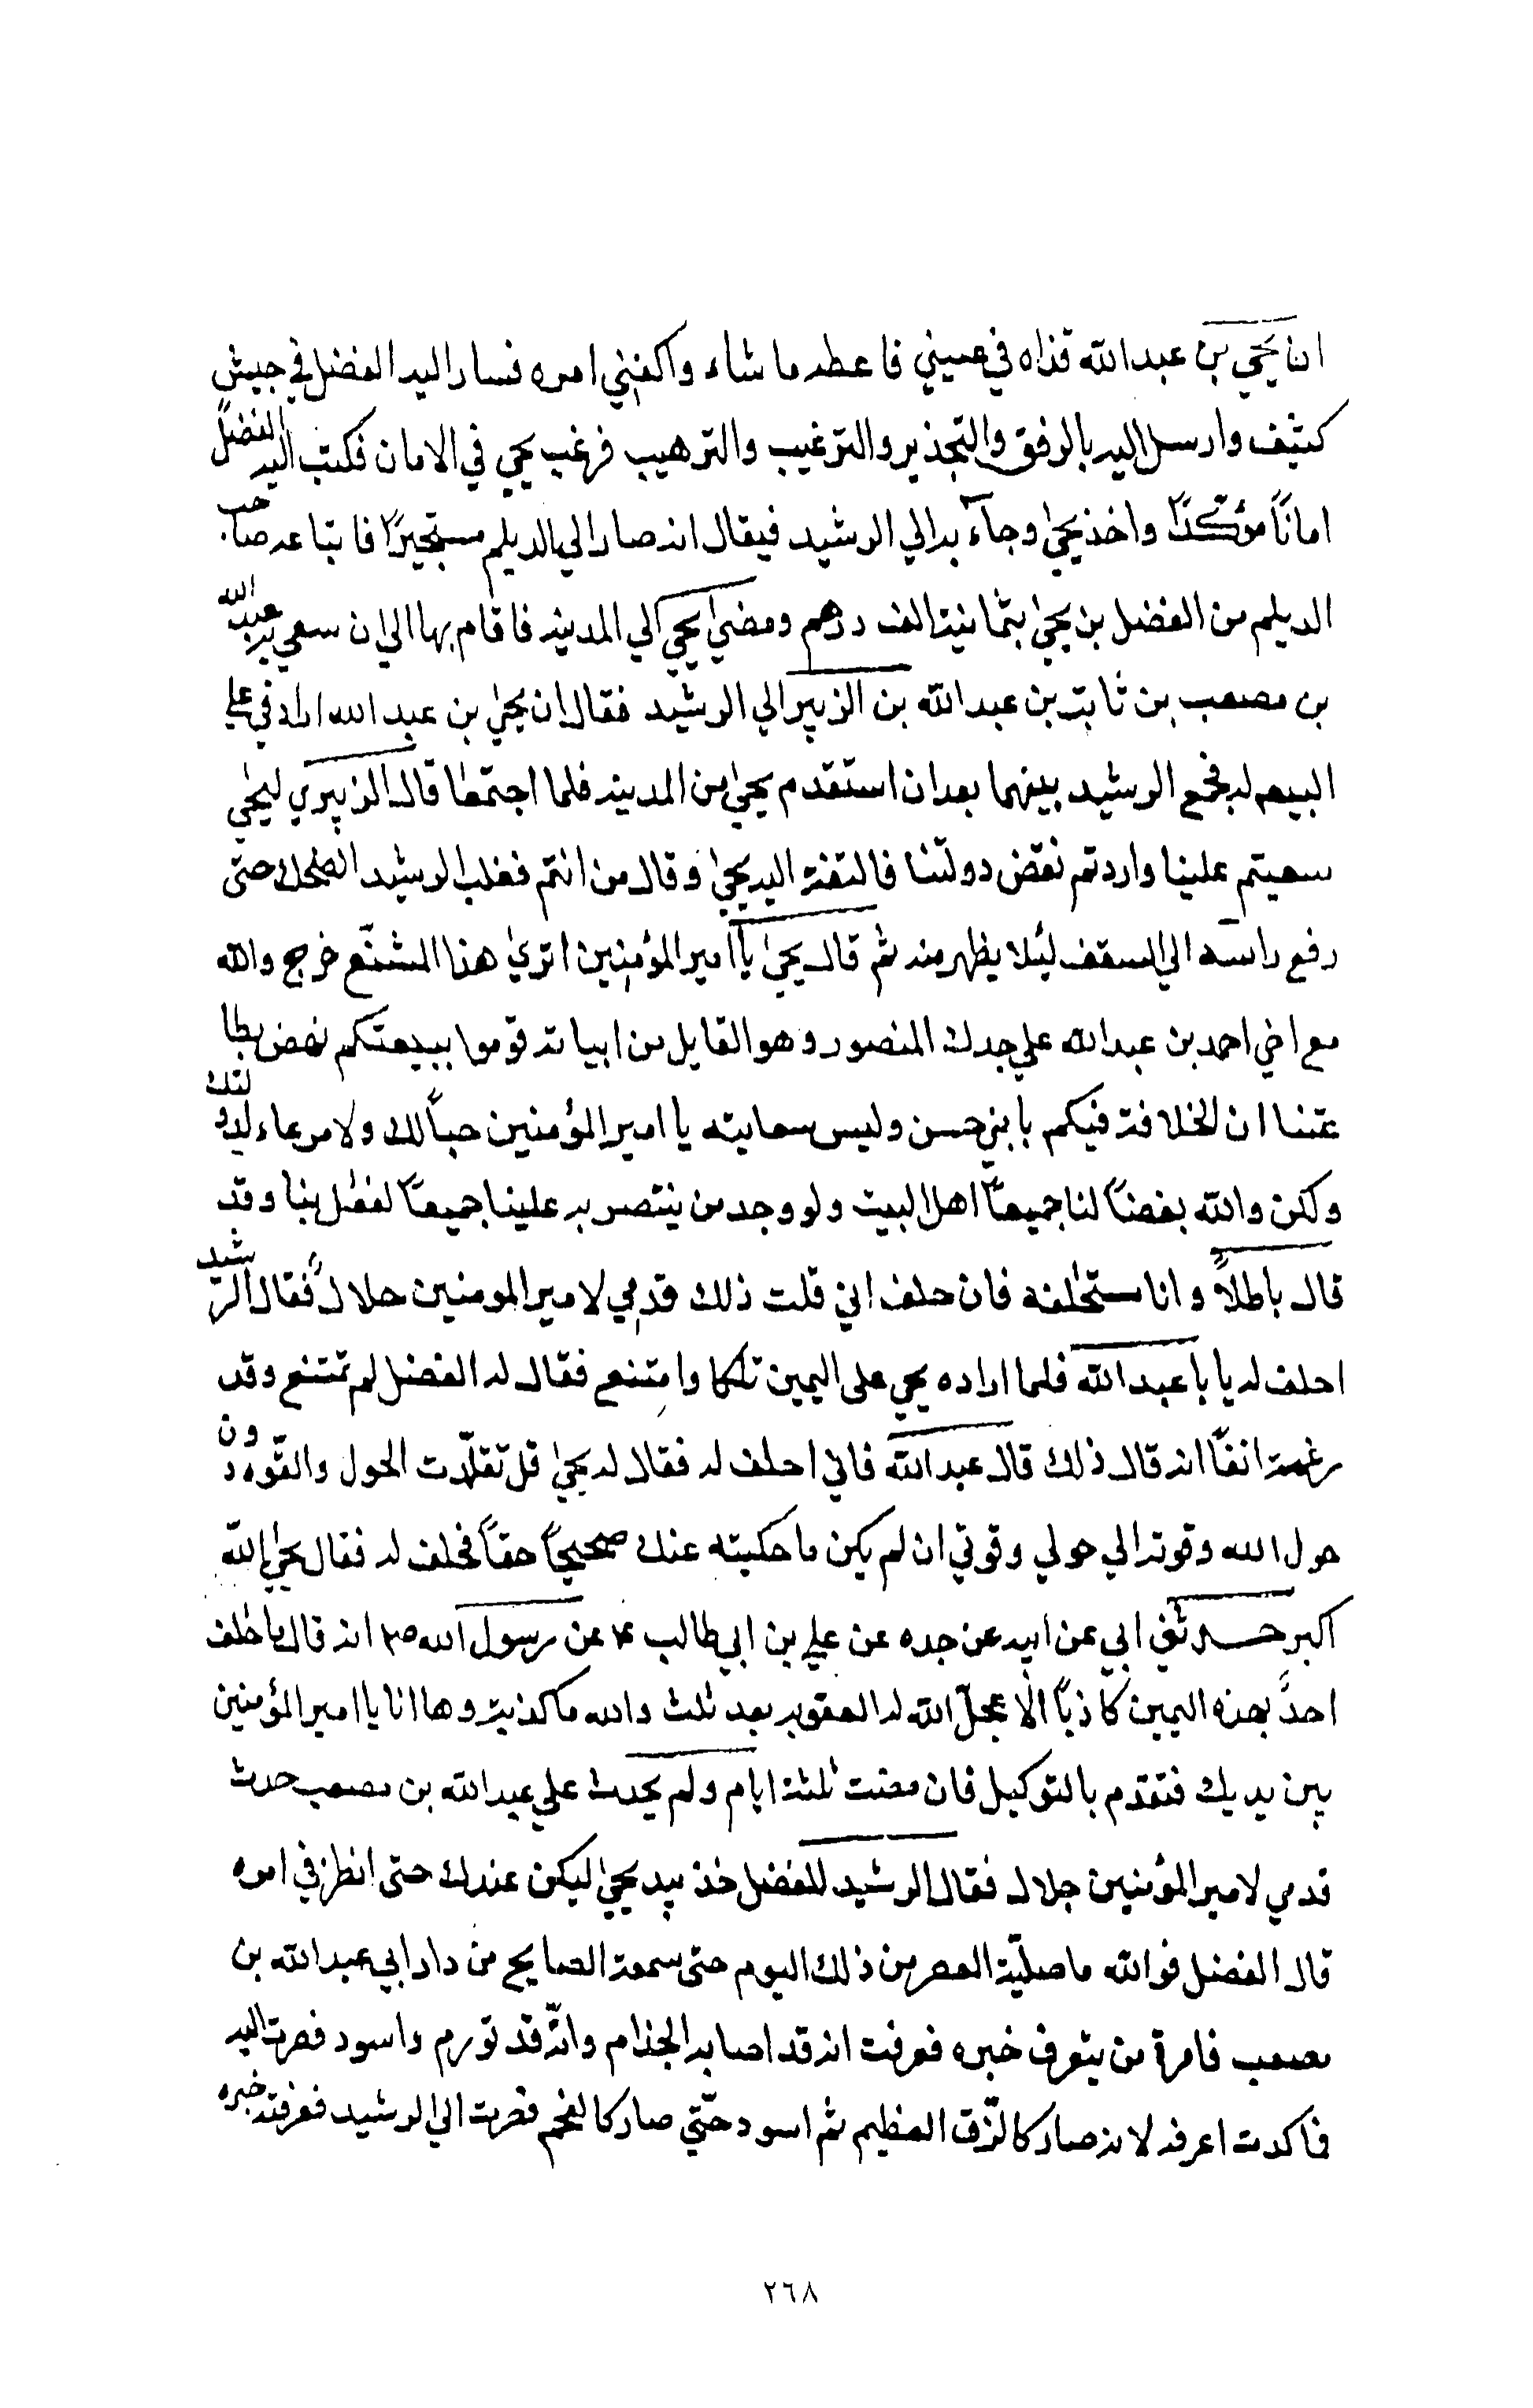 ان يحيي بن عبدالله قذاه في عييني فاعطه ما شاء واكفني امره فسار اليه الفضل في جيش
كثيف وارسل اليه بالرفق والتجذير والترغيب والترهيب فرغب يحيي في الامان فكتب اليه الفضل
اماناً مؤكداً واخذ يحيٰ وجآء به الي الرشيد فيقال انه صار الي الديلم مستجيراً فابتاعه صاحب
الديلم من الفضل بن يحيٰ بثمانية الف درهم ومضيٰ يحيٰ الي المدينه فاقام بها الي ان سعي به عبدالله
بن مصعب بن ثابت بن عبدالله بن الزبير الي الرشيد فقال ان يحيٰ بن عبد الله ارادني علي
البيعه له فجمع الرشيد بينهما بعد ان استقدم يحيٰ من المدينه فلما اجتمعا قال الزبيري ليحيٰ
سعيتم علينا واردتم نقض دولتنا فالتفت اليه يحيٰ وقال من انتم فغلب الرشيد الضحك حتى
رفع راسه الي السقف ليُلا يظهر منه ثم قال يحيٰ يا امير المؤمنين اتريٰ هذا المشنّع خرج والله
مع اخي احمد بن عبدالله علي جدك المنصور وهو القايل من ابياته قوموا ببيعتكم نهض بطا
عتنا ان الخلافة فيكم يا بني حسن وليس سعايته يا امير المؤمنين حباً لك ولا مرعاء لدولتك
ولكن والله بغضاً لنا جميعاً اهل البيت ولو وجد من ينتصر به علينا جميعاً لفعل بنا وقد
قال باطلاً وانا مستحلفه فان حلف اني قلت ذلك فدمي لامير المومنين حلالاً فقال الرشيد
احلف له يا با عبدالله فلما اراده يحيي على اليمين تلكا وامتنع فقال له الفضل لم تمتنع وقد
زعمت انفاً انه قال ذلك قال عبدالله فاني احلف له فقال له يحيٰ قل تقلّدت الحول والقّوه دون
حول الله وقوته الي حولي وقوتي ان لم يكن ما حكيته عنك صحيحاً حقاً فحلف له فقال يحيٰ الله
اكبر حدثني ابي عن ابيه عن جده عن علي بن ابي طالب ع عن رسول الله ص انه قال ما حلف
احدً بهذه اليمين كاذباً الّا عجلّ الله له العقوبه بعد ثلث والله ما كذبت وها انا يا امير المؤمنين
بين يديك فتقدم بالتوكيل فان مضت ثلثة ايام ولم يحدث علي عبدالله بن مصعب حدث
فدمي لامير المؤمنين حلال فقال الرشيد للفضل خذ بيد يحيٰ ليكن عندك حتى انظر في امره
قال الفضل فوالله ما صلّية العصر من ذلك اليوم حتى سمعة الصايح من دار ابي عبدالله بن
مصعب فامرة من يتعرف خبره فعرفت انه قد اصابه الجذام وانّه قد تورم واسود فصرت اليه
فما كدت اعرفه لانه صار كالزّق العظيم ثم اسود حتّي صار كالفحم فصرت الي الرشيد فعرفته خبره
٢٦٨